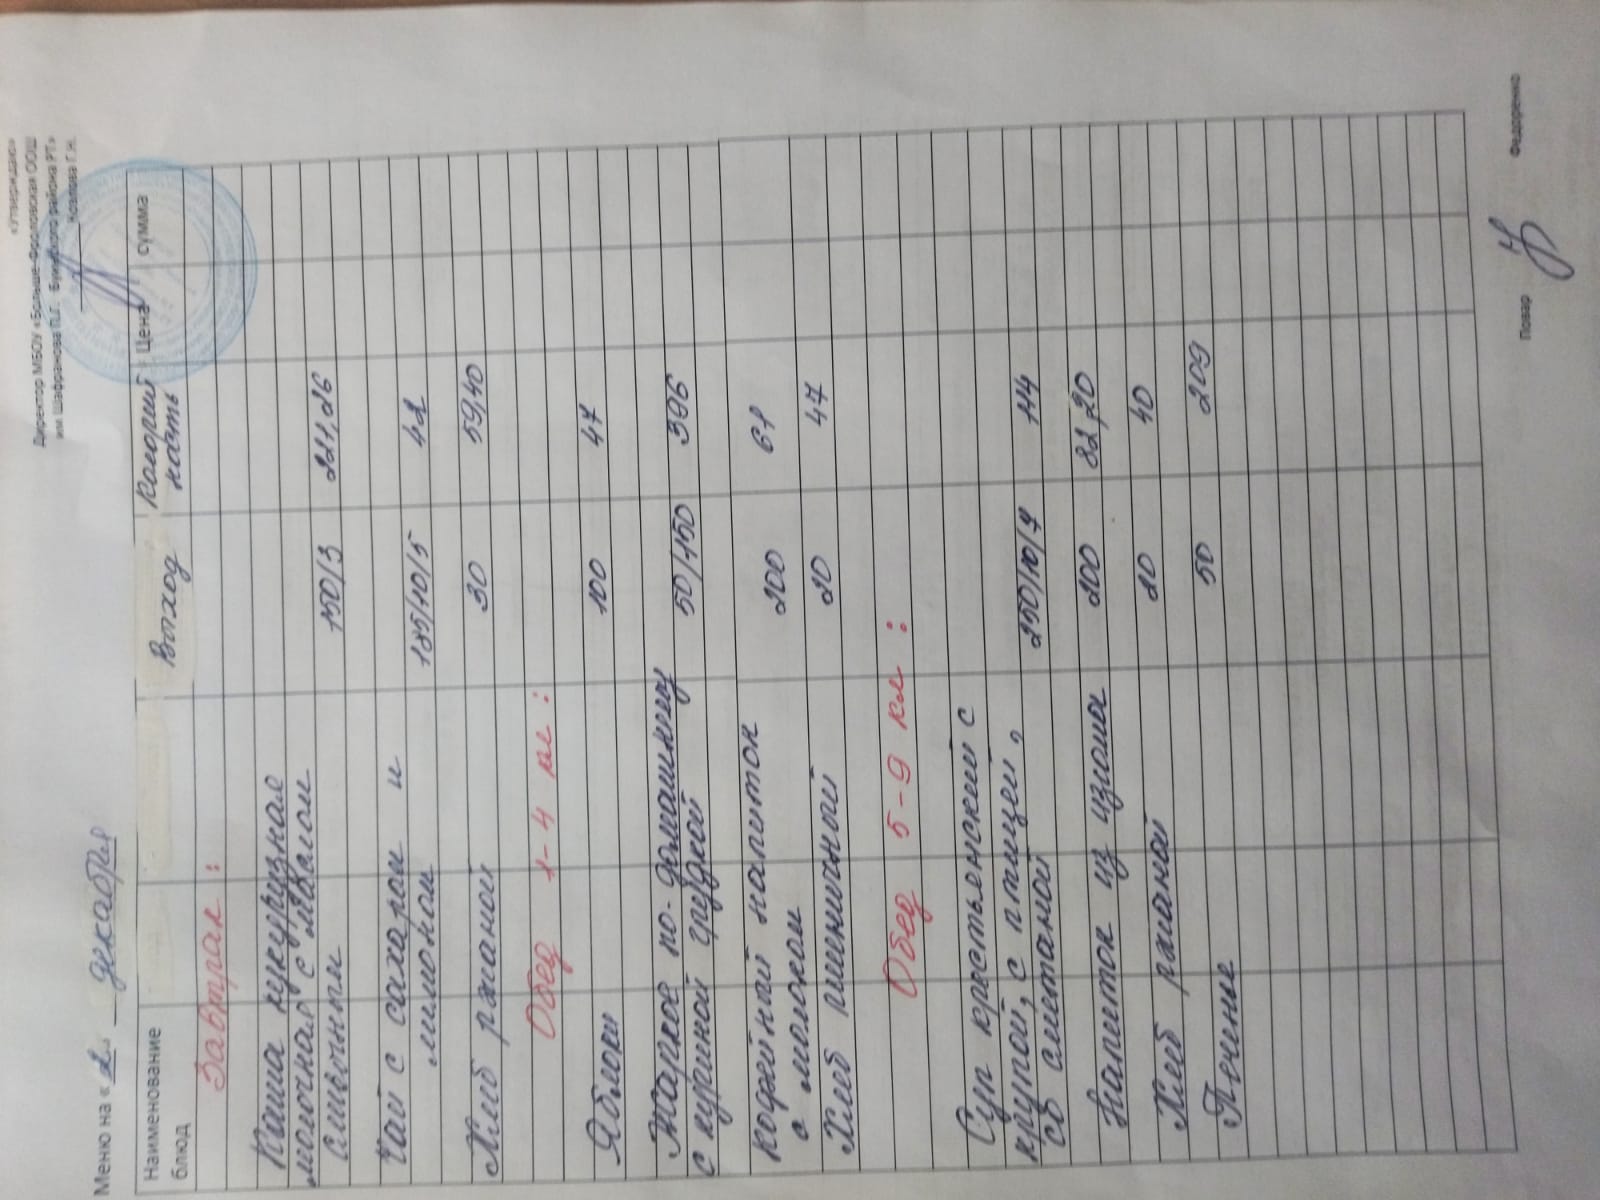 «Утверждаю»
Директор МБОУ «Больше-Фроловская ООШ
им Шафранова П.Г. Буинского района РТ»
Козлова Г.Н.
Меню на «2» декабря
Наименование блюд Выход Калорий ность Цена сумма
Завтрак :
Каша кукурузная
молочная с маслом
сливочным 150/3 221,26
Чай с сахаром и
лимоном 185/10/5 42
Хлеб ржаной 30 59,40
Обед 1-4 кл :
Яблоки 100 47
Жаркое по-домашнему
с куриной грудкой 50/150 396
Кофейный напиток
с молоком 200 61
Хлеб пшеничный 20 47
Обед 5-9 кл :
Суп крестьянский с
крупой, с птицей,
со сметаной 250/10/7 144
Напиток из изюма 200 82,20
Хлеб ржаной 20 40
Печенье 50 209
Повар Федоренко